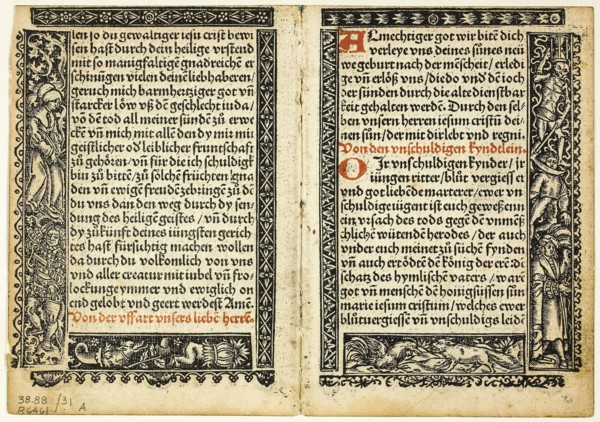 len so du gewaltiger iesu crist bewi
sen hast durch dein heilige vrstend
mit so manigfaltigē gnadreichē er
schinūgen vielen deinē liebhaberen/
geruch mich barmhertziger got vñ
starcker löw vß dē geschlecht iuda/
vō dē tod all meiner sündē zů erwe
ckē vñ mich mit allē den dy mir mit
geistlicher od leiblicher fruntschaft
zů gehörē/ vñ für die ich schuldigk
bin zů bittē/ zů sölchē früchten gna
den vñ ewigē freudē zebringē zů dē
du vns dan den weg durch dy sen
dung des heiligē geistes / vñ durch
dy zůkünft deines iüngsten gerich
tes hast fürsichtig machen wollen
da durch du volkomlich von vns
vnd aller creatur mit iubel vñ fro-
lockung eymmer vnd ewiglich on
end gelobt vnd geert werdest Amē.
Von der vffart vnsers liebē herrē.
38.88 /31
R6461 A
ALmechtiger got wir bitē dich
verleye vns deines sūnes neü
we geburt nach der mēscheit/ erledi
ge vñ erlöß vns/ die do vnd dē ioch
der sünden durch die alte dienstbar
keit gehalten werdē. Durch den sel-
ben vnsern herren iesum cristū dei
nen sūn/ der mit dir lebt vnd regni.
Von den vnschuldigen kyndelein.
OIr vnschuldigen kynder/ ir
iüngen ritter/ blůt vergiessē
vnd got liebēde marterer/ ewer vn
schuldige iügent ist euch gewesenn
ein vrsach des tods gegē dē vnmēß
schlichē wütendē herodes/ der auch
vnder euch meinet zů süchē fynden
vñ auch ertödtē dē könig der erē/ dē
schatz des hymlischē vaters/ warē
got vñ menschē dē honigsüssen sūn
marie iesum cristum/ welches ewer
blůtuergiessē vñ vnschuldigs leidē